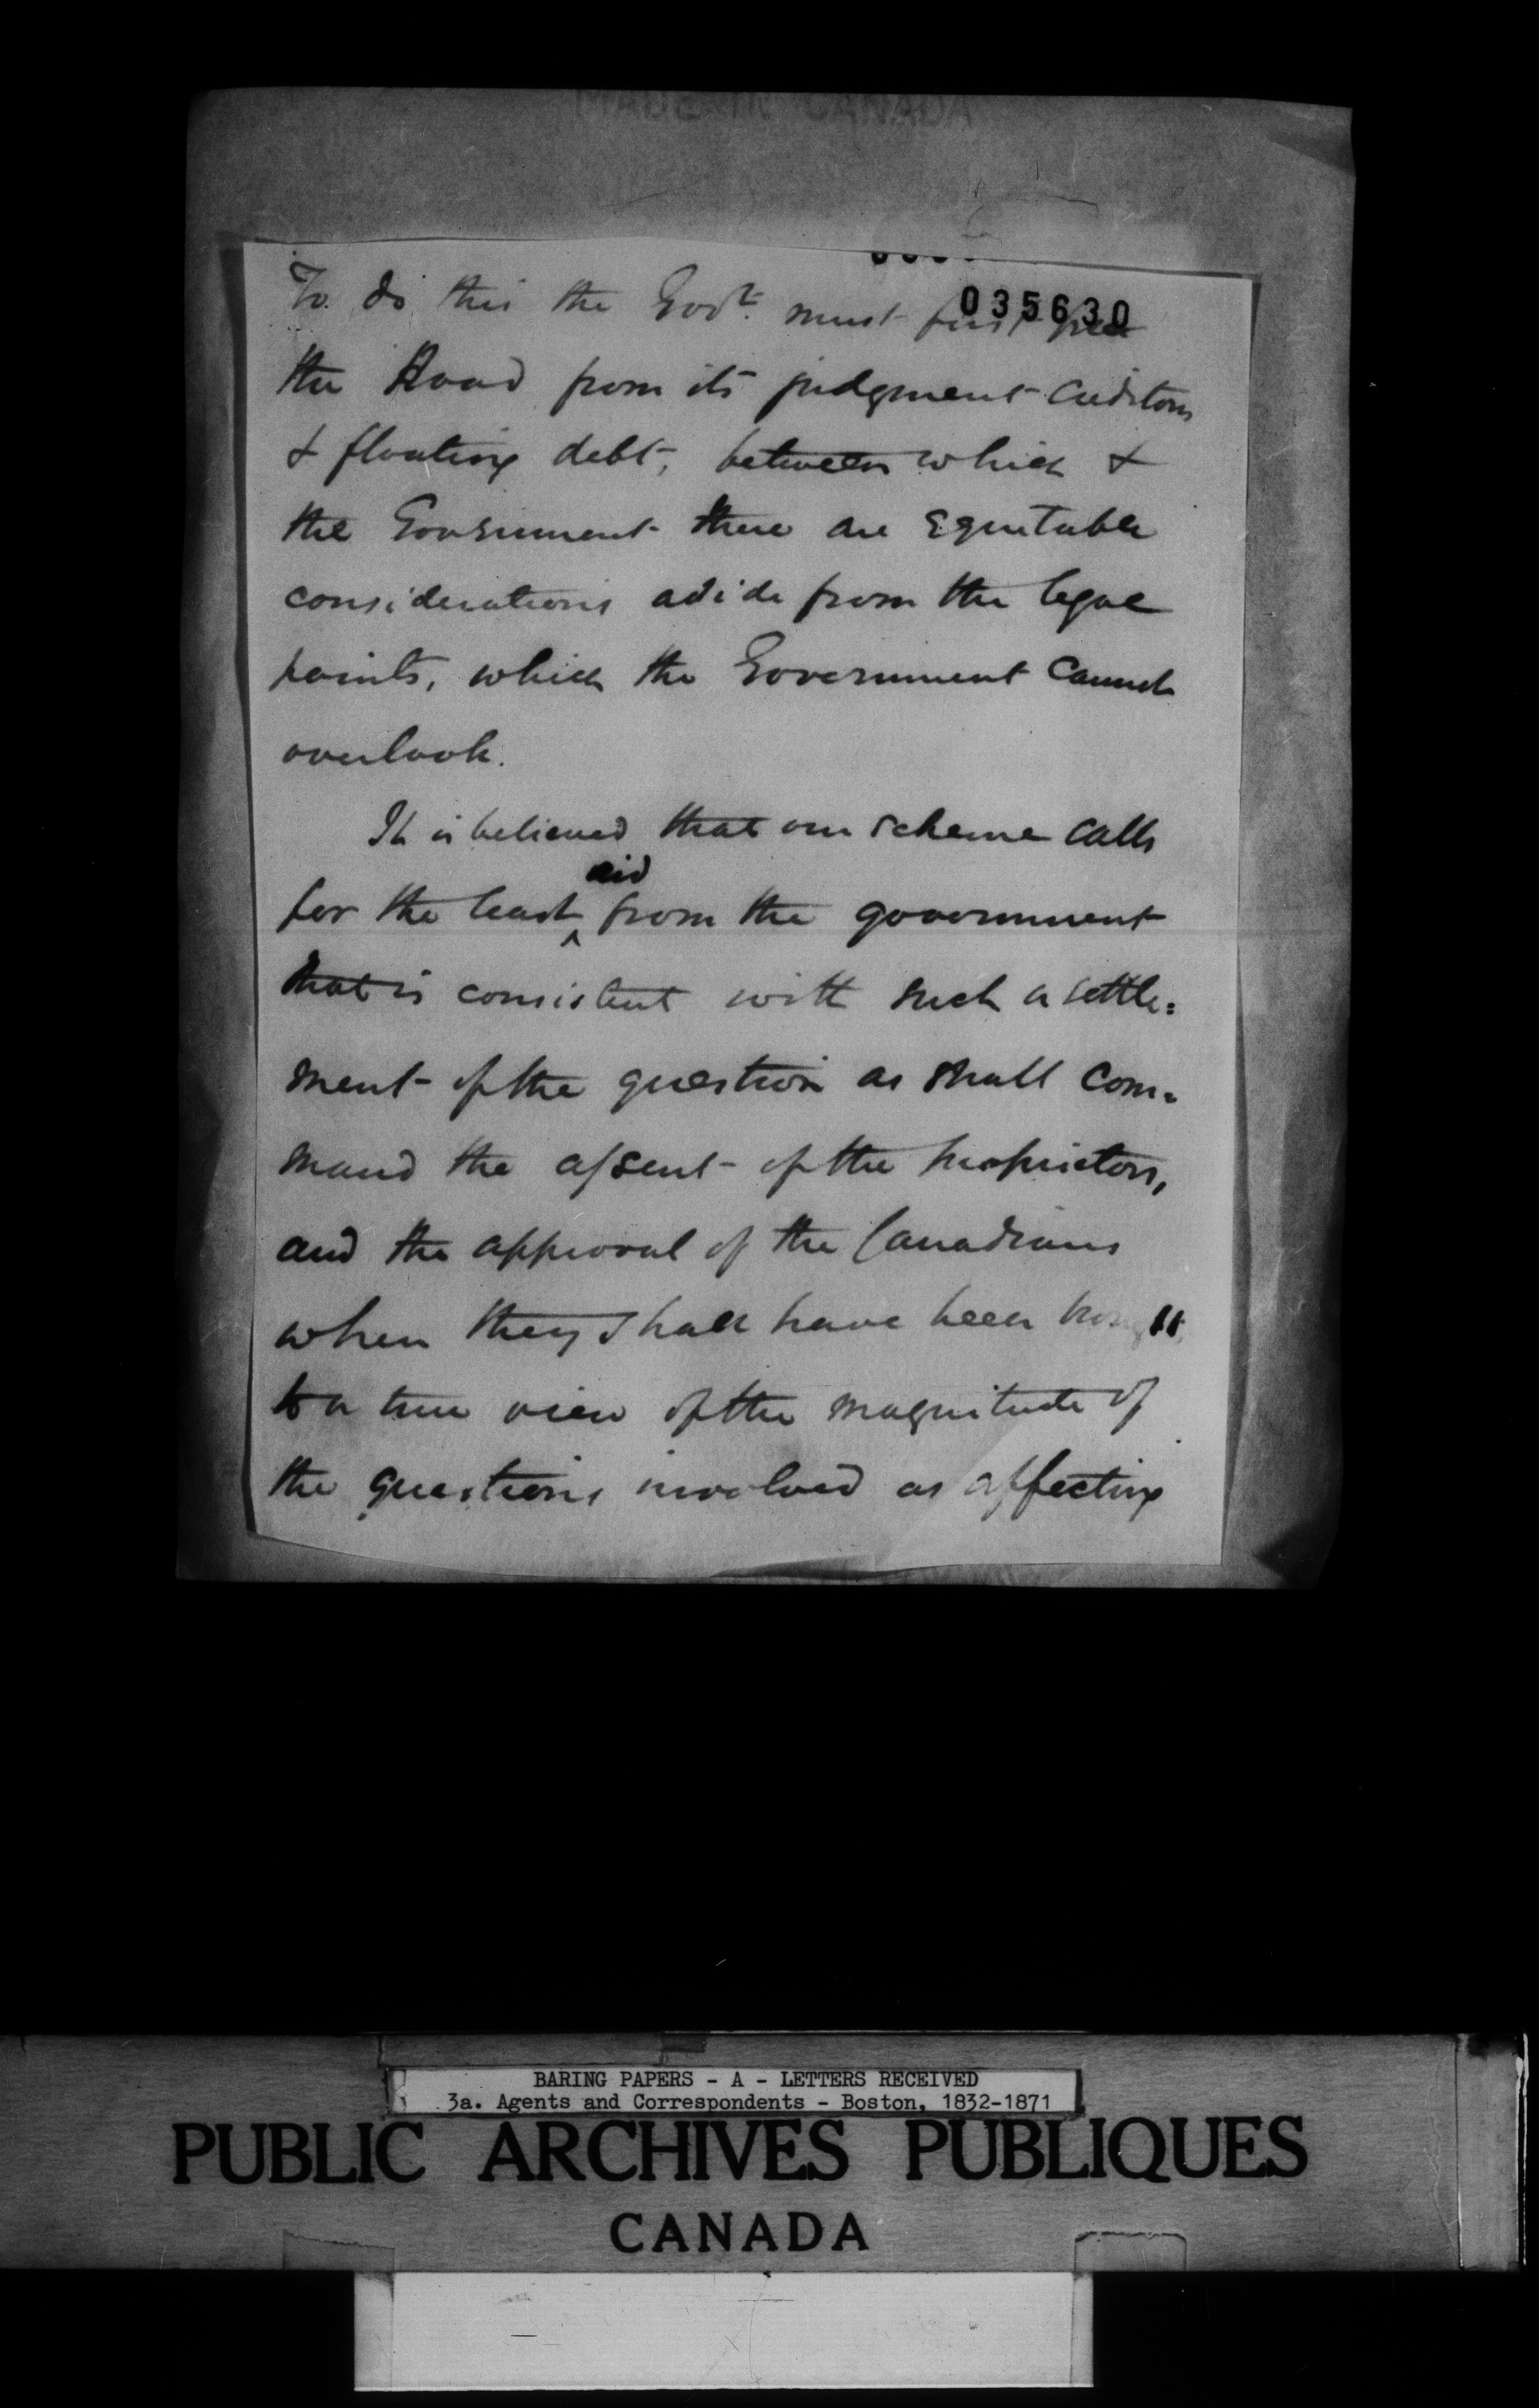 MADE IN CANADA
035630
To do this the Govt. must first free
the Road from its judgment creditors
& floating debt, between which &
the Government there are equitable
considerations aside from the legal
points, which the Government cannot
overlook.
It is believed that our scheme calls
aid
for the least ^ from the government
that is consistent with such a settle=
ment of the question as shall com=
mand the assent of the proprietors,
and the approval of the Canadians
when they shall have been brought
to a true view of the magnitude of
the questions involved as affecting
BARING PAPERS - A - LETTERS RECEIVED
3a. Agents and Correspondents - Boston, 1832-1871
PUBLIC ARCHIVES PUBLIQUES
CANADA